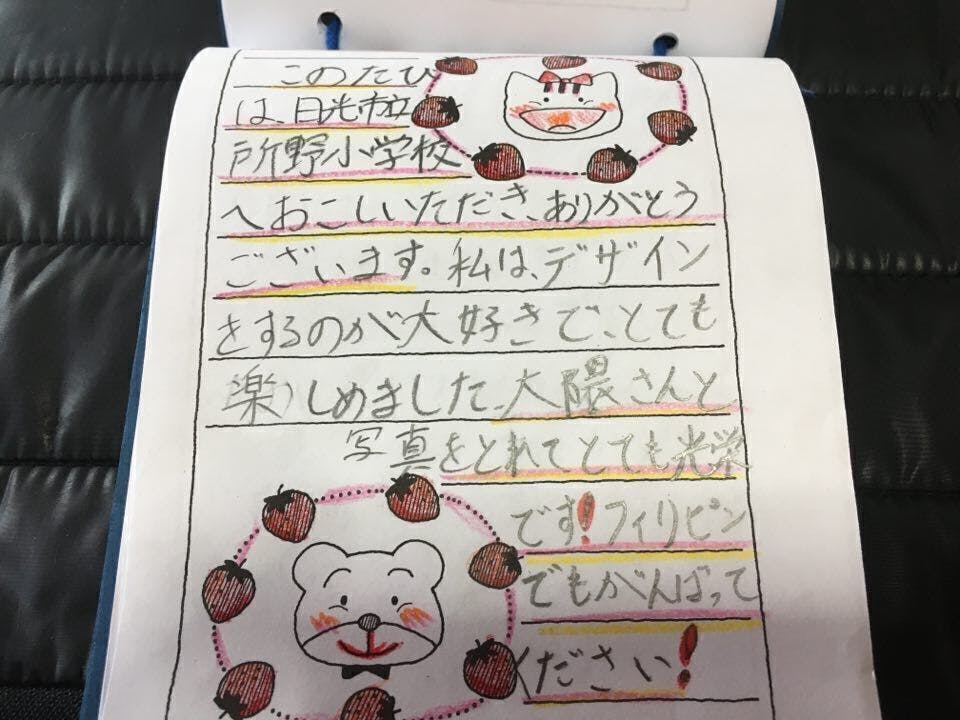 このたび
は、日光市立
所野小学校
へおこしいただき、ありがとう
ございます。私は、デザイン
をするのが大好きで、とても
楽しめました。大隈さんと
写真をとれてとても光栄
です!フィリピン
でもがんばって
ください!